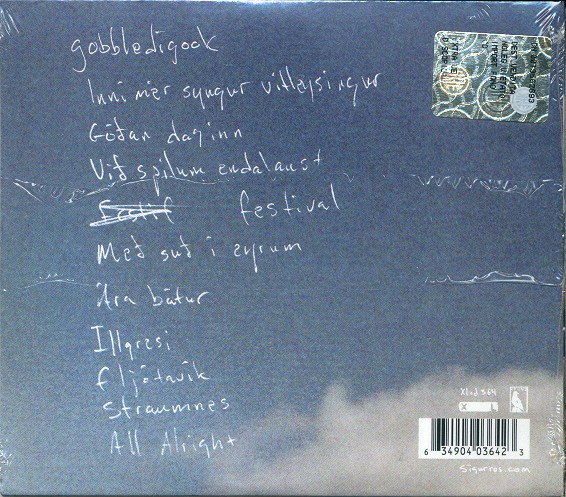 gobbledigook
Inní mér syngur vitleysingur
Góðan daginn
Við spilum endalaust
Festif festival
Með suð í eyrum
Ára bátur
Illgresi
fljótavík
Straumnes
All Alright
XL
6 34904 03642 3
sigurros.com